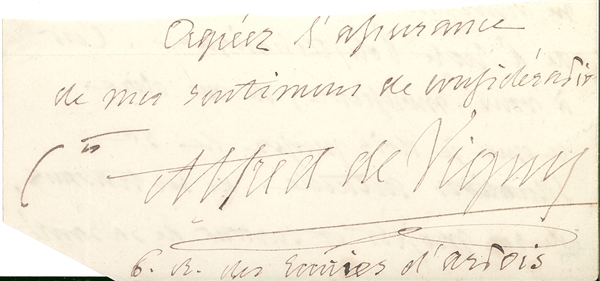 Agréez l'assurance
de mes sentimens de considération
Cte Alfred de Vigny
6. r. des Ecuries d'artois